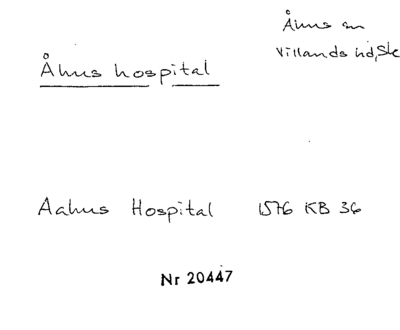 Åhus sn
Villands hd, Sk
Åhus hospital
Aahus Hospital 1576 KB 36
Nr 20447